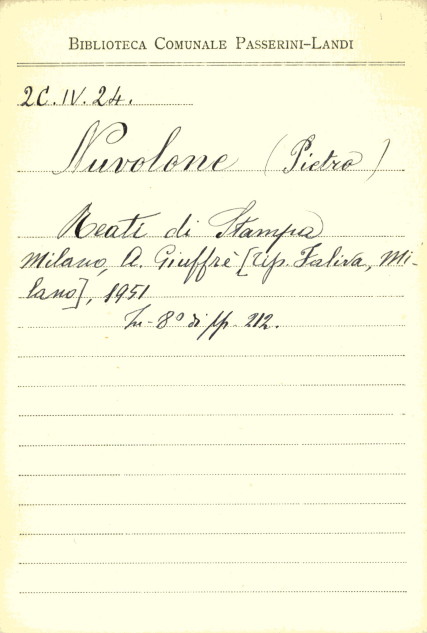 Biblioteca Comunale Passerini-Landi
2C.IV.24.
Nuvolone (Pietro)
Reati di Stampa
Milano, A. Giuffrè [Tip. Faliva, Mi-
lano], 1951
In-8° di pp. 212.